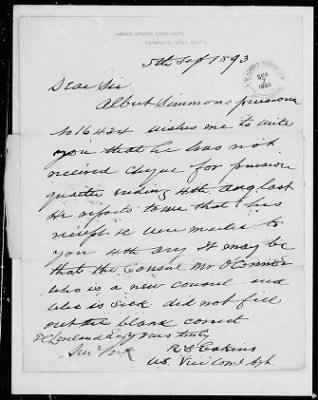 UNITED STATES CONSULATE,
YARMOUTH, NOVA SCOTIA.
5th Sept 1893
SEP
7
1893
Dear Sir
Albert Simmons pensioner
No 16424 wishes me to write
you that he has not
received cheque for pension
quarter ending 4th Aug last
He reports to me that his
receipts were mailed to
you 4th Aug It may be
that the Consul Mr O'Connor
who is a new consul and
who is sick did not fill
out the blank correct
Yours truly
New York
U.S. Vice Consl